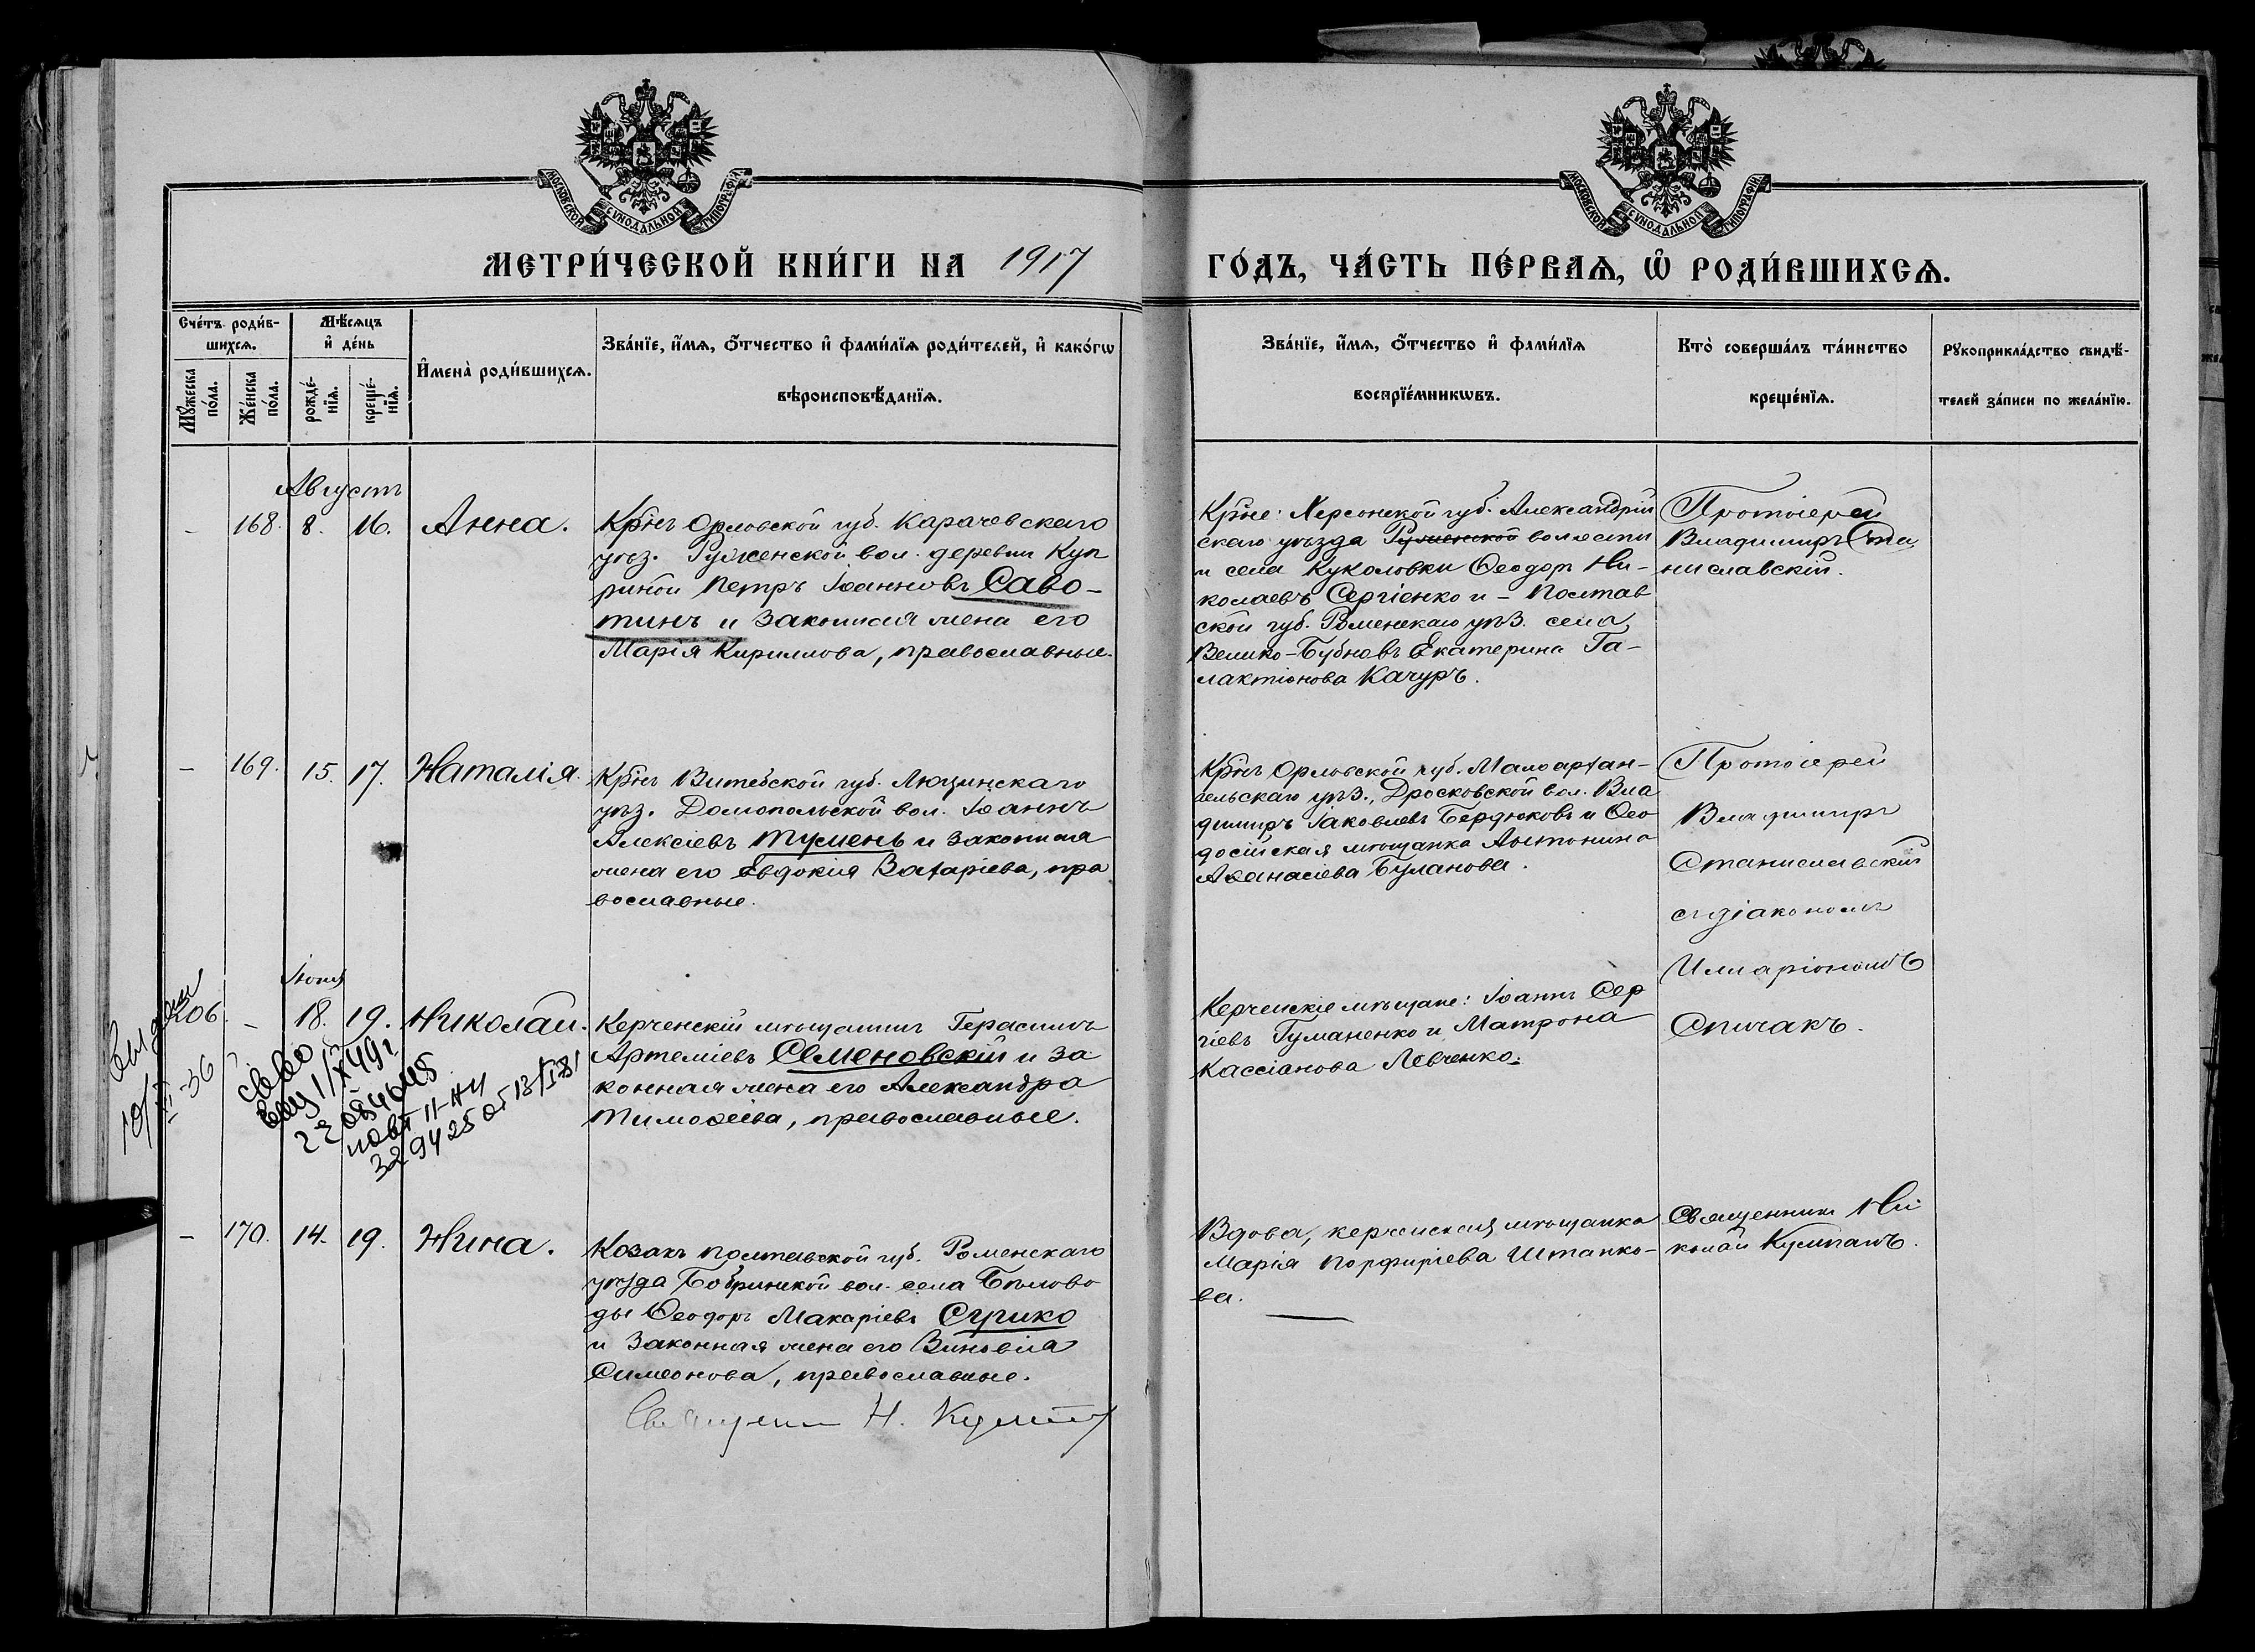 МОСКОВСКОЙ СѴНОДАЛЬНОЙ ТИПОГРАФІИ
МОСКОВСКОЙ СѴНОДАЛЬНОЙ ТИПОГРАФІИ
МЕТРИ́ЧЕСКОЙ КНИ́ГИ НА 1917 ГО́ДЪ, ЧА́СТЬ ПЕ́РВАѦ, Ѽ РОДИ́ВШИХСѦ.
Счéтъ роди́в-
шихсѧ.
Мꙋ́жеска по́ла.
Же́нска по́ла.
Мѣ́сѧцъ
и҆ де́нь
рожде́-
нїѧ.
креще́-
нїѧ.
И҆мена̀ роди́вшихсѧ.
Зва́нїе, и҆́мѧ, ѻ҆́тчество и҆ фами́лїѧ роди́телей, и҆ како́гѡ
вѣроисповѣ́данїѧ.
Зва́нїе, и҆́мѧ, ѻ҆́тчество и҆ фами́лїѧ
воспрїе́мникѡвъ.
Кто̀ соверша́лъ та́инство
креще́нїѧ.
Рꙋкоприкла́дство свидѣ́-
телей за́писи по жела́нїю.
Августъ
- 168. 8. 16. Анна.
Крнъ Орловской губ. Карачевскаго
уѣз. Руженской вол. деревни Куп
риной Петръ Іоанновъ Саво-
тинъ и законная жена его
Марія Кириллова, православные.
Крне: Херсонской губ. Александрій
скаго уѣзда волости
и села Куколовки Ѳеодоръ Ни-
колаевъ Сергіенко и - Полтав
ской губ. Роменскаго уѣз. села
Велико-Бубновъ Екатерина Га-
лактіонова Качуръ.
Протоіерей
Владимиръ Ста
ниславскій.
- 169. 15. 17. Наталія.
Крнъ Витебской губ. Люцинскаго
уѣз. Домопольской вол. Іоаннъ
Алексіевъ Тумень и законная
жена его Евдокія Захаріева, пра
вославные.
Крнъ Орловской губ. Малоархан-
гельскаго уѣз., Дросковской вол. Вла
димиръ Іаковлевъ Бердюковъ и Ѳео
досійская мѣщанка Антонина
Аѳанасіева Буланова.
Протоіерей
Владимиръ
Станиславскій
съ діакономъ
Иларіономъ
Спичакъ.
Іюня
206. - 18. 19. Николай.
Керченскій мѣщанинъ Герасимъ
Артеміевъ Семеновскій и за
конная жена его Александра
Тимоѳеева, православные.
Керченскіе мѣщане: Іоаннъ Сер
гіевъ Гуманенко и Матрона
Кассіанова Левченко.
10/XI-36
329425 от 13/I 81
- 170. 14. 19. Нина.
Козакъ Полтавской губ. Роменскаго
уѣзда Бобринской вол. села Бѣлово
ды Ѳеодоръ Макаріевъ Сѣрико
и законная жена его Зиновіа
Симеонова, православные.
Вдова, керченская мѣщанка
Марія Порфиріева Штанко-
ва.
Священникъ Ни
колай Кумпанъ.
Священникъ Н. Кумпанъ